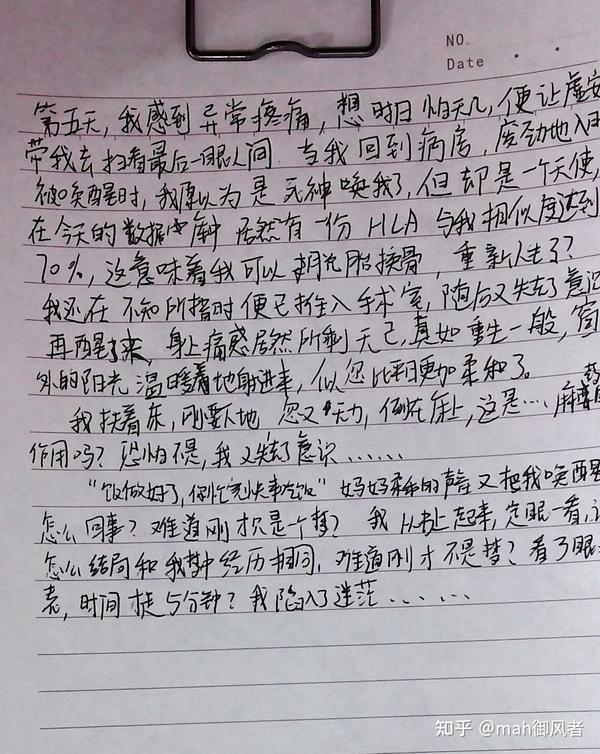 NO.
Date . .
第五天，我感到异常疼痛，想时日怕无几，便让虚安
带我去扫看最后一眼人间。当我回到病房，疲劲地入
被唤醒时，我原以为是死神唤我了，但却是一个天使，
在今天的数据库中 居然有一份 HLA 与我相似度达到
70%，这意味着我可以脱胎换骨，重新人生了？
我还在不知所措时便已推入手术室，随后又失去了意识
再醒来，身上痛感居然所剩无己，真如重生一般，窗
外的阳光温暖着地射进来，似您比平日更加柔和了。
我扶着床，刚要下地，忽又无力，倒在床上，这是… 麻
药
作用吗？恐怕不是，我又失去了意识……
“饭做好了，你忙完快来吃饭”妈妈柔和的声音又把我唤醒
怎么回事？难道刚才只是个梦？我从书上起来，定眼一看，
怎么结局和我梦中经历相同，难道刚才不是梦？看了眼
表，时间才走5分钟？我陷入了迷茫……
知乎 @mah御风者